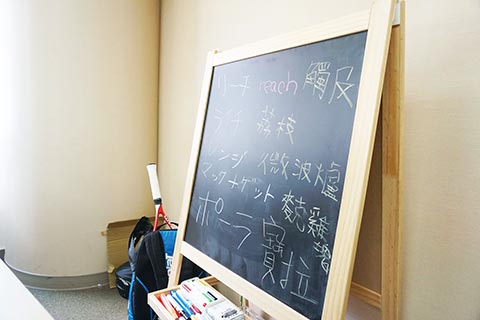 リーチ reach 觸及
ライチ 荔枝
レンジ 微波爐
マックナゲット 麥克雞塊
ポーラ 寶拉